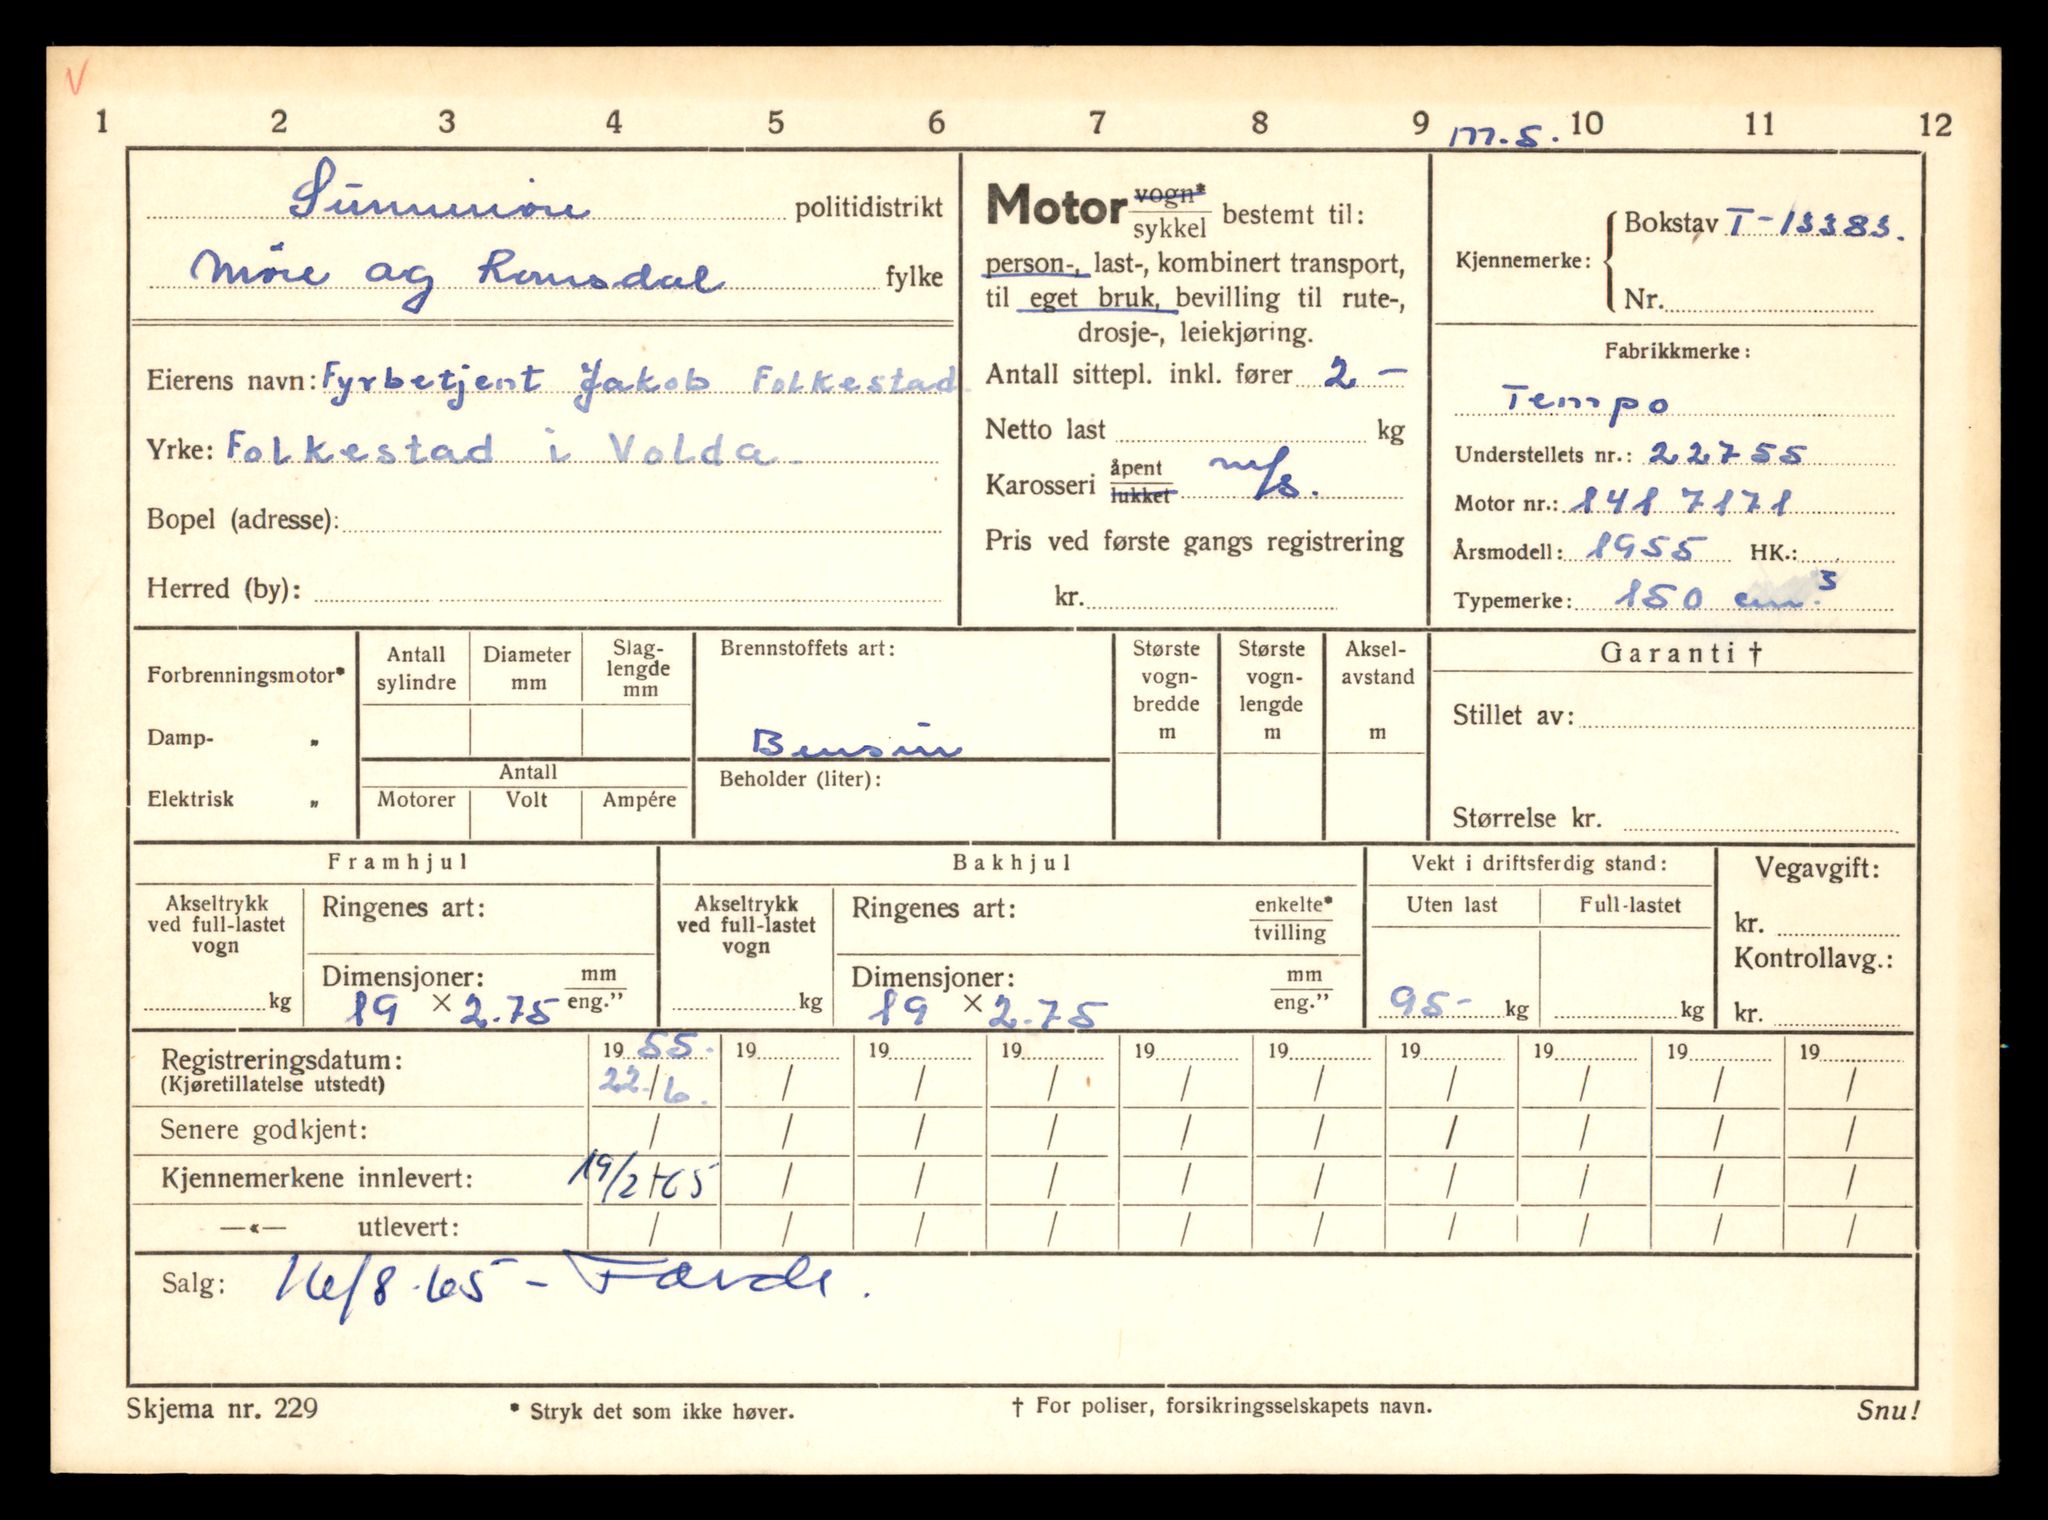 V
1 2 3 4 5 6 7 8 9 10 11 12
m.s.
Sunnmøre politidistrikt
Møre og Romsdal fylke
Eierens navn: Fyrbetjent Jakob Folkestad.
Yrke: Folkestad i Volda.
Bopel (adresse):
Herred (by):
Motor vogn* / sykkel bestemt til:
person-, last-, kombinert transport,
til eget bruk, bevilling til rute-,
drosje-, leiekjøring.
Antall sittepl. inkl. fører 2 -
Netto last kg
Karosseri åpent / lukket m/s.
Pris ved første gangs registrering
kr.
Kjennemerke: Bokstav T-13383.
Nr.
Fabrikkmerke:
Tempo
Understellets nr.: 22755
Motor nr.: 1417171
Årsmodell: 1955 HK.:
Typemerke: 150 cm.³
Forbrenningsmotor*
Damp- „
Elektrisk „
Antall sylindre
Diameter mm
Slag-lengde mm
Antall
Motorer Volt Ampére
Brennstoffets art:
Bensin
Beholder (liter):
Største vogn-bredde m
Største vogn-lengde m
Aksel-avstand m
Garanti †
Stillet av:
Størrelse kr.
Framhjul
Akseltrykk ved full-lastet vogn
kg
Ringenes art:
Dimensjoner: mm / eng."
19 × 2.75
Bakhjul
Akseltrykk ved full-lastet vogn
kg
Ringenes art: enkelte* / tvilling
Dimensjoner: mm / eng."
19 × 2.75
Vekt i driftsferdig stand:
Uten last Full-lastet
95- kg kg
Vegavgift:
kr.
Kontrollavg.:
kr.
Registreringsdatum: 19 55. 19 19 19 19 19 19 19 19 19
(Kjøretillatelse utstedt) 22./6. / / / / / / / / /
Senere godkjent: / / / / / / / / / /
Kjennemerkene innlevert: 19/2-65 / / / / / / / / /
—«— utlevert: / / / / / / / / / /
Salg: 16/8.65 - Førde.
Skjema nr. 229
* Stryk det som ikke høver.
† For poliser, forsikringsselskapets navn.
Snu!